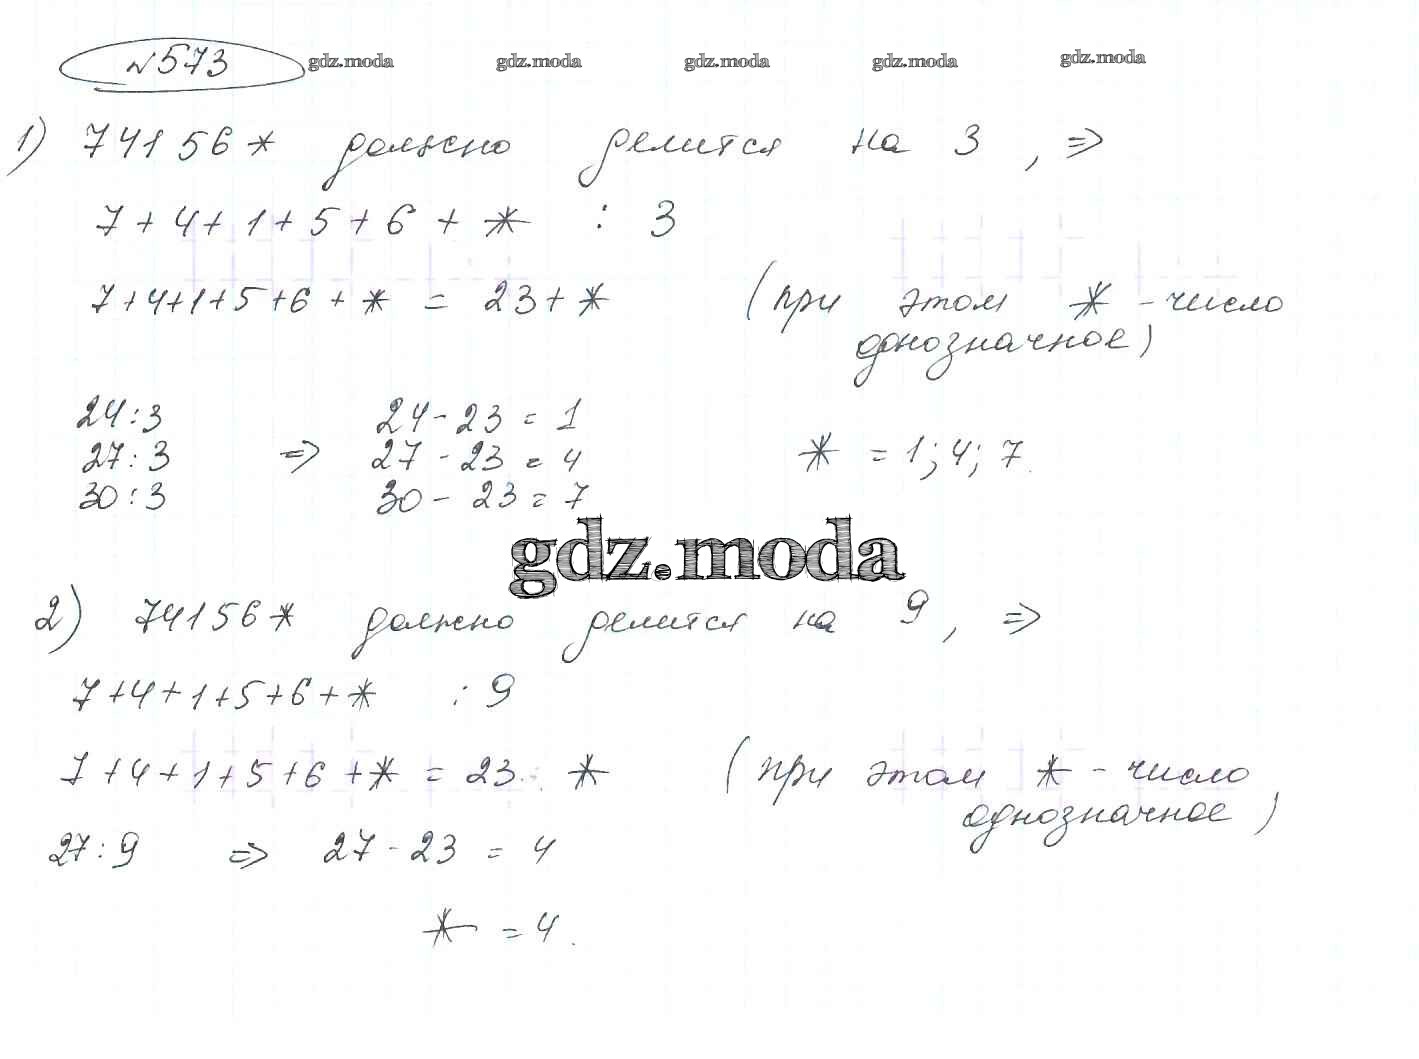 №573 gdz.moda gdz.moda gdz.moda gdz.moda gdz.moda
1) 74156* должно делится на 3, =>
7+4+1+5+6+* : 3
7+4+1+5+6+* = 23+* (при этом * - число
однозначное)
24:3 24-23=1
27:3 => 27-23=4 * =1;4;7.
30:3 30-23=7
gdz.moda
2) 74156* должно делится на 9, =>
7+4+1+5+6+* : 9
7+4+1+5+6+* = 23 *  (при этом * - число
однозначное)
27:9 => 27-23=4
* =4.